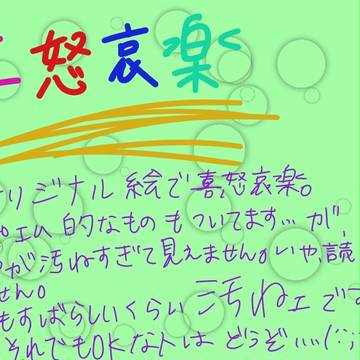 怒哀楽
リジナル絵で喜怒哀楽。
ェム的なものもついてます…が、
が汚ねすぎて見えません。いや、読
せん。
もすばらしいくらい汚ねェです
それでもOKなトはどうぞ…